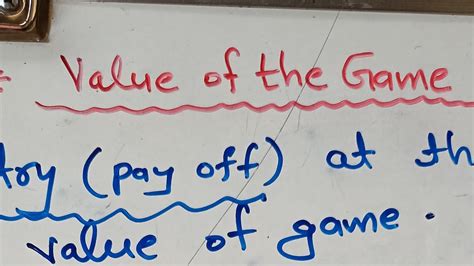 Value of the Game
try (pay off) at th
value of game.